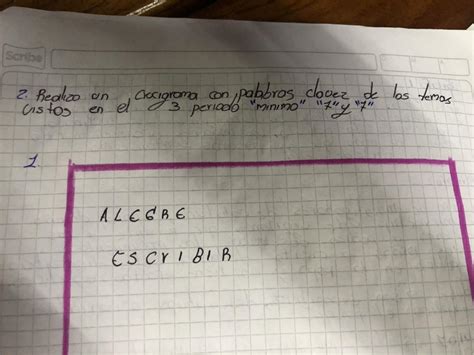 Scribe
2. Realizo un Crucigrama con palabras clavez de los temas
vistos en el 3 periodo "minimo" "7" y "7"
1.
ALEGRE
ESCRIBIR